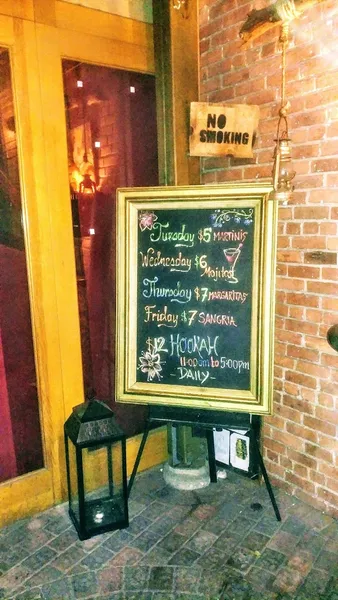 NO
SMOKING
Tuesday $5 MARTINIS
Wednesday $6
Mojitos
Thursday $7 MARGARITAS
Friday $7 SANGRIA
$12 HOOKAH
11:00am to 5:00pm
DAILY